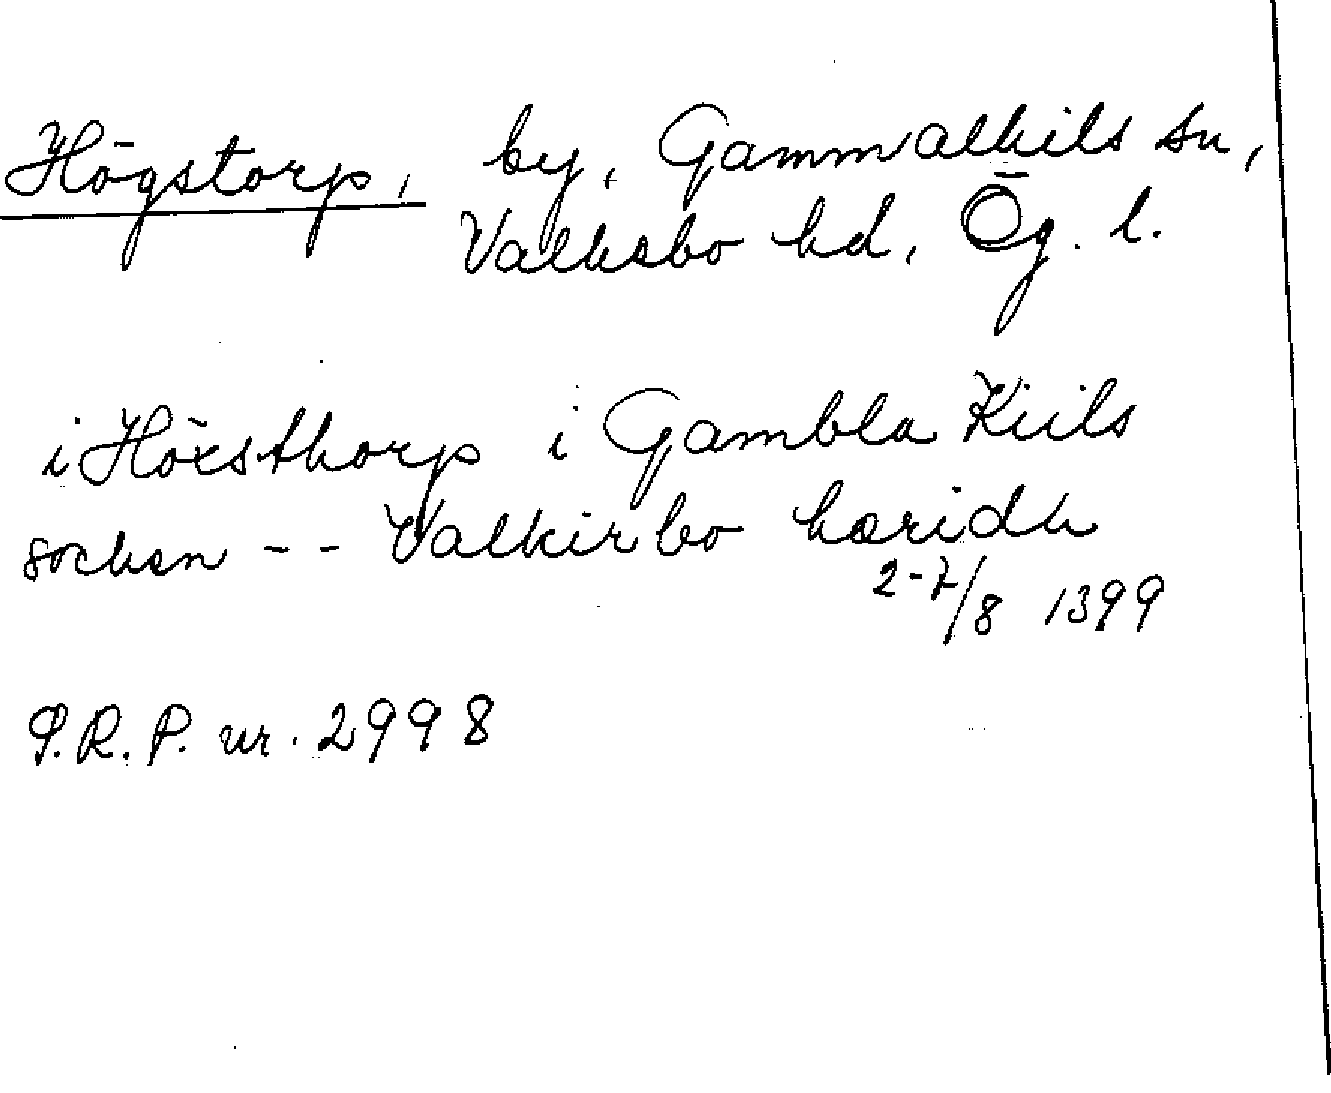 Högstorp, by, Gammalkils sn,
Valkebo hd, Ög. l.
i Höxsthorp i Gambla Kiils
sochen -- Valkirbo hæridh
2-7/8 1399
P.R.P. nr. 2998